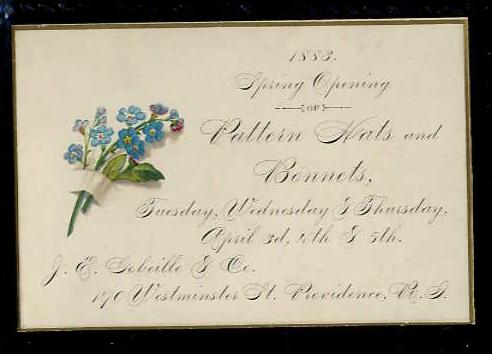 1883.
Spring Opening
OF
Pattern Hats and
Bonnets,
Tuesday, Wednesday & Thursday,
April 3d, 4th & 5th.
J. E. Gobeille & Co.
170 Westminster St. Providence, R. I.